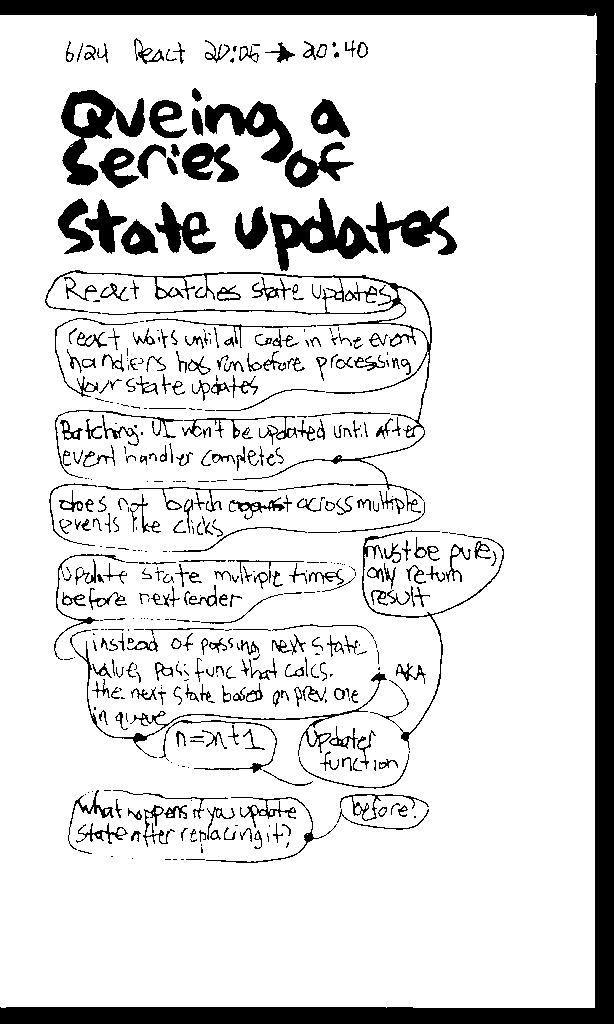 6/24 React 20:05 → 20:40
Queing a
series of
state updates
React batches state updates
react waits until all code in the event
handlers has run before processing
your state updates
Batching: UI won't be updated until after
event handler completes
does not batch across multiple
events like clicks
must be pure,
only return
result
update state multiple times
before next render
instead of passing next state
value, pass func that calcs.
the next state based on prev. one
in queue
AKA
n=>n+1
Updater
function
what happens if you update
state after replacing it?
before?